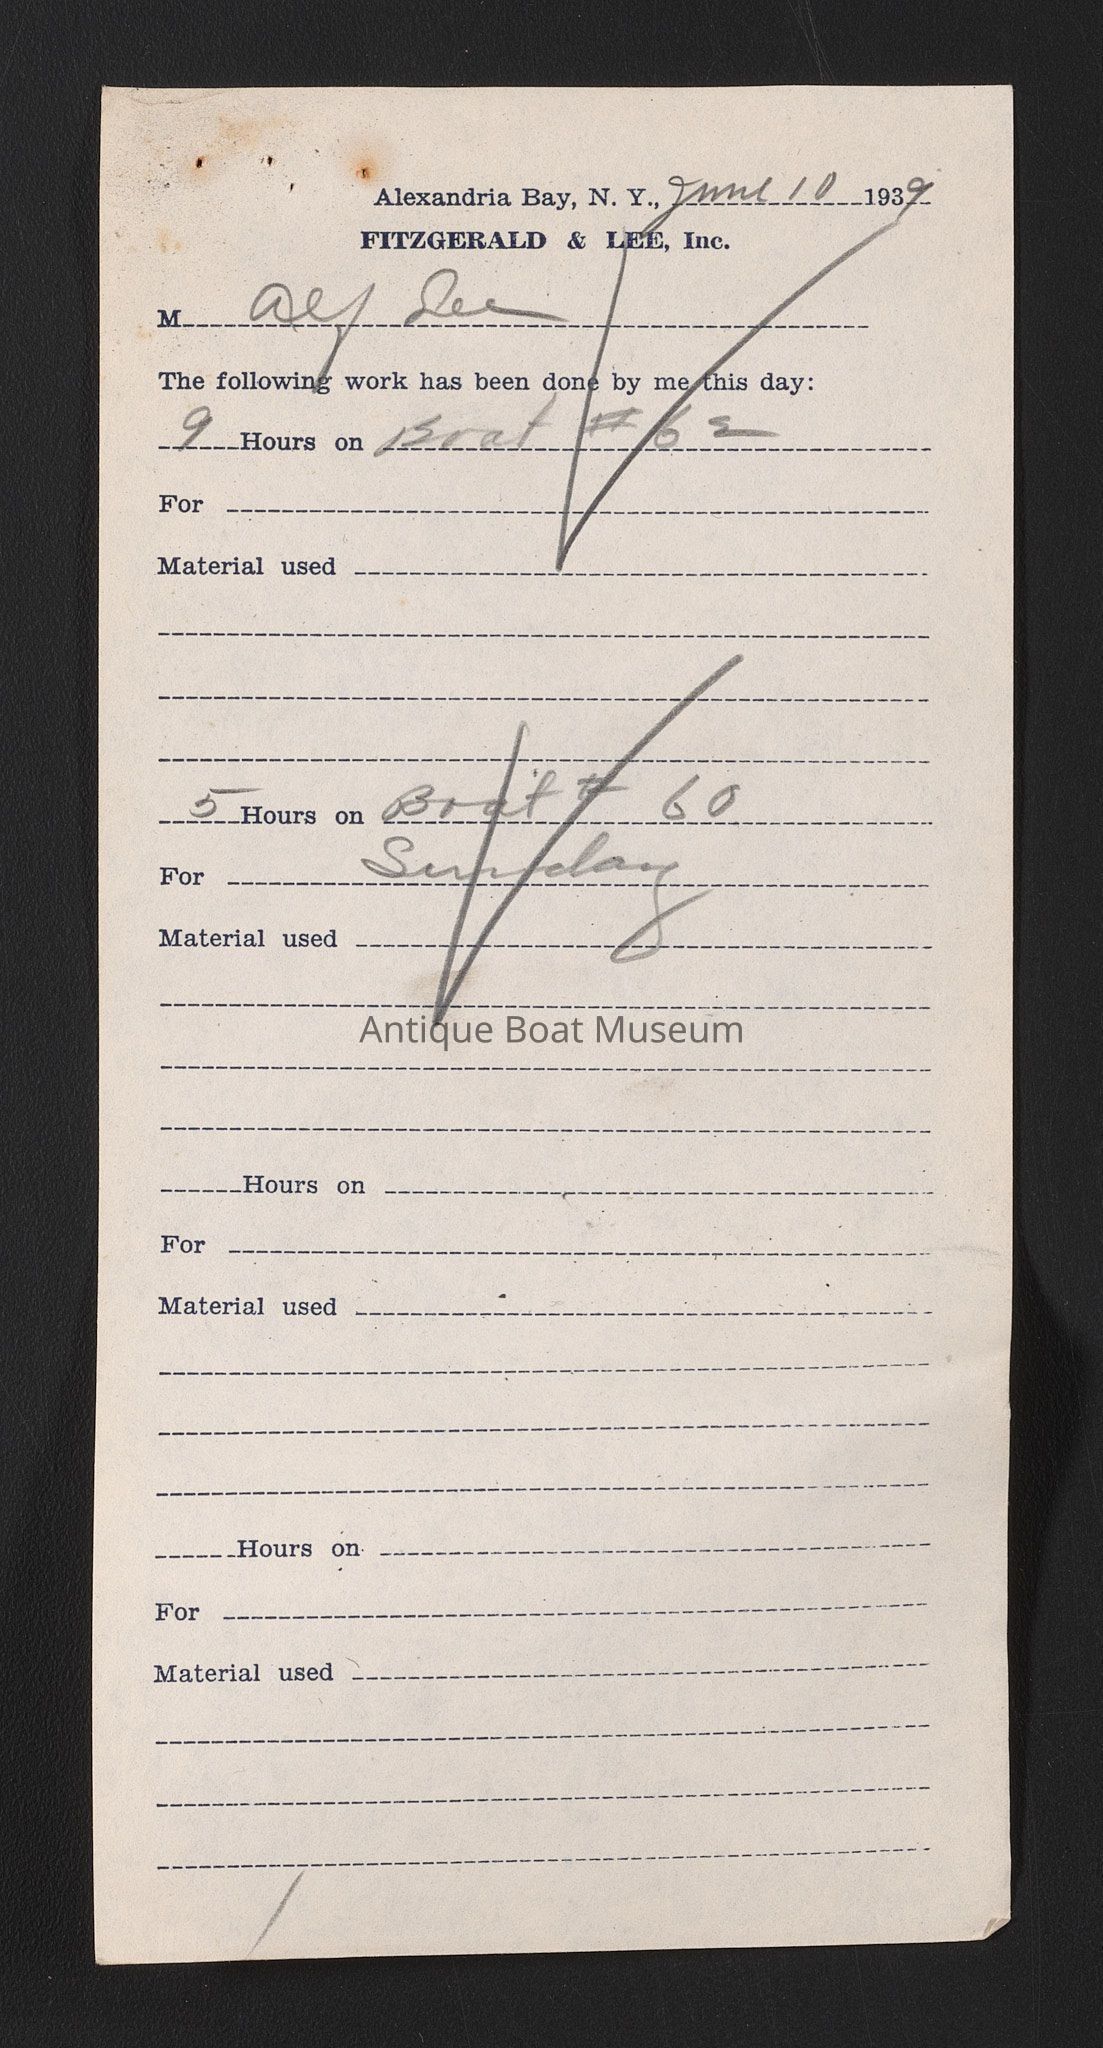 Alexandria Bay, N. Y., June 10 1939
FITZGERALD & LEE, Inc.
M Alf Lee
The following work has been done by me this day:
9 Hours on Boat # 62
For
Material used
5 Hours on Boat # 60
For Sunday
Material used
Antique Boat Museum
Hours on
For
Material used
Hours on
For
Material used